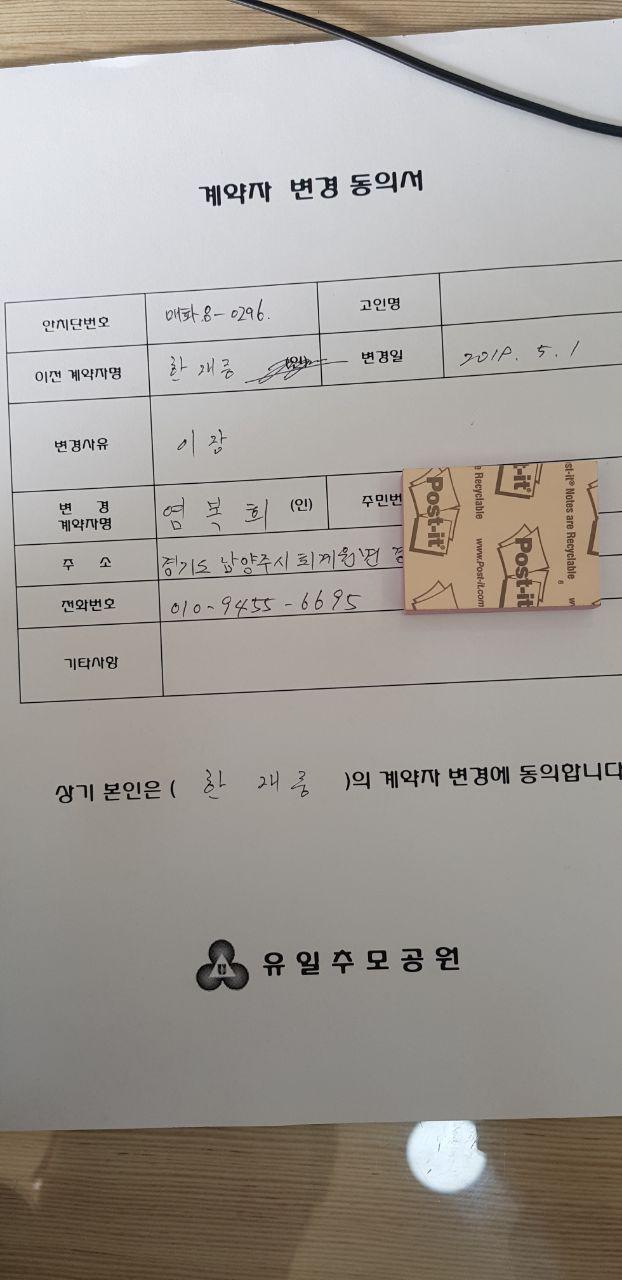 계약자 변경 동의서
안치단번호 매화8-0296. 고인명
이전 계약자명 한재룡 (인) 변경일 2018. 5. 1
변경사유 이장
변 경 계약자명 염복희 (인) 주민번
주 소 경기도 남양주시 퇴계원면 경
전화번호 010-9455-6695
기타사항
상기 본인은 ( 한재룡 )의 계약자 변경에 동의합니다
유일추모공원
Post-it
www.Post-it.com
e Recyclable
-it
Post-it
st-it® Notes are Recyclable
w